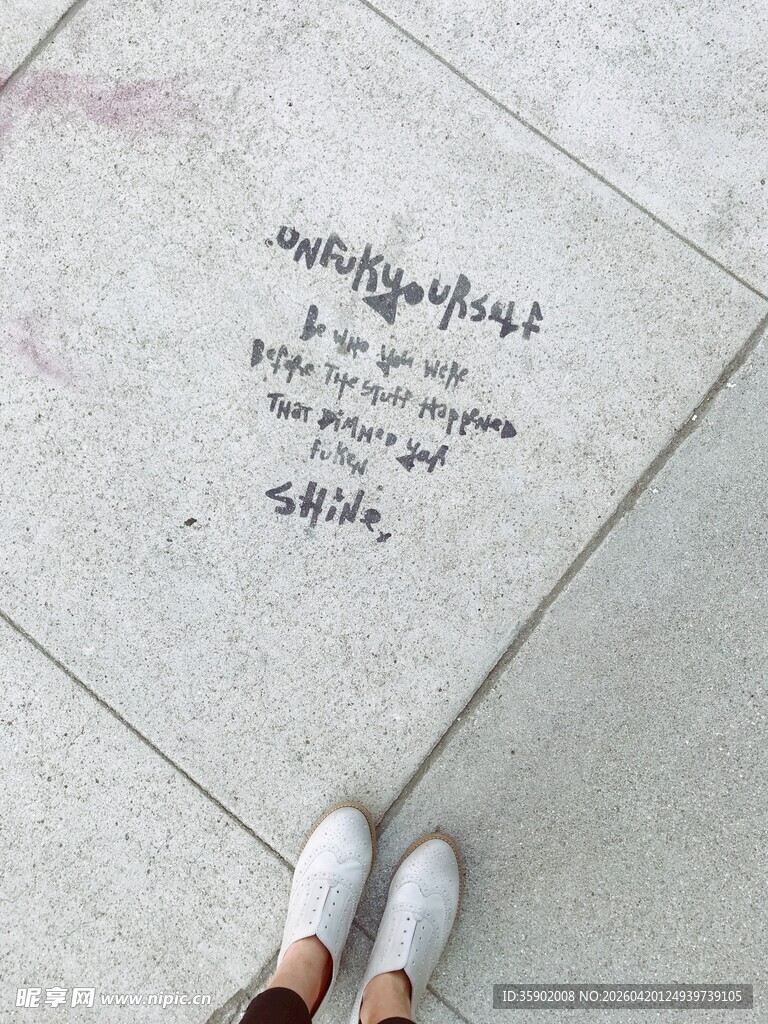 UNFUKYOURSELF
Be WHO You WeRe
BefoRe THe STuff HAPPENeD
THAT DIMMeD YoR
fuKeN
SHiNe.
昵享网 www.nipic.cn
ID:35902008 NO:20260420124939739105